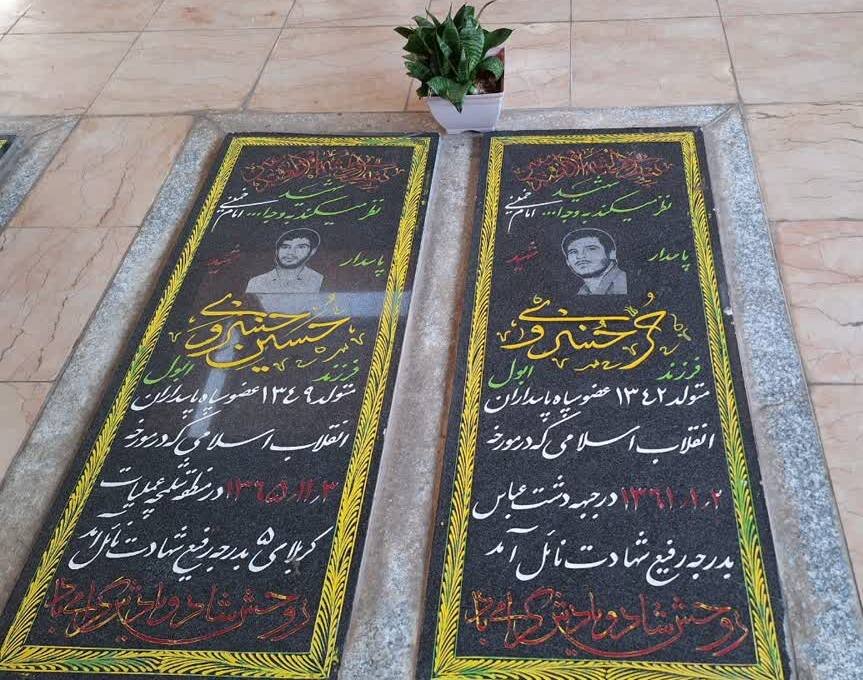 شهید
نظر میکند به وجه ا... امام خمینی
پاسدار شهید
حر خسروی
فرزند ابول
متولد ۱۳۴۲ عضو سپاه پاسداران
انقلاب اسلامی که در مورخه
۱۳۶۱٫۱٫۲ در جبهه دشت عباس
بدرجه رفیع شهادت نائل آمد
روحش شاد و یادش گرامی باد
شهید
نظر میکند به وجه ا... امام خمینی
پاسدار شهید
حسین خسروی
فرزند ابول
متولد ۱۳۴۹ عضو سپاه پاسداران
انقلاب اسلامی که در مورخه
۱۳۶۵٫۱۱٫۳ در منطقه شلمچه عملیات
کربلای ۵ بدرجه رفیع شهادت نائل آمد
روحش شاد و یادش گرامی باد